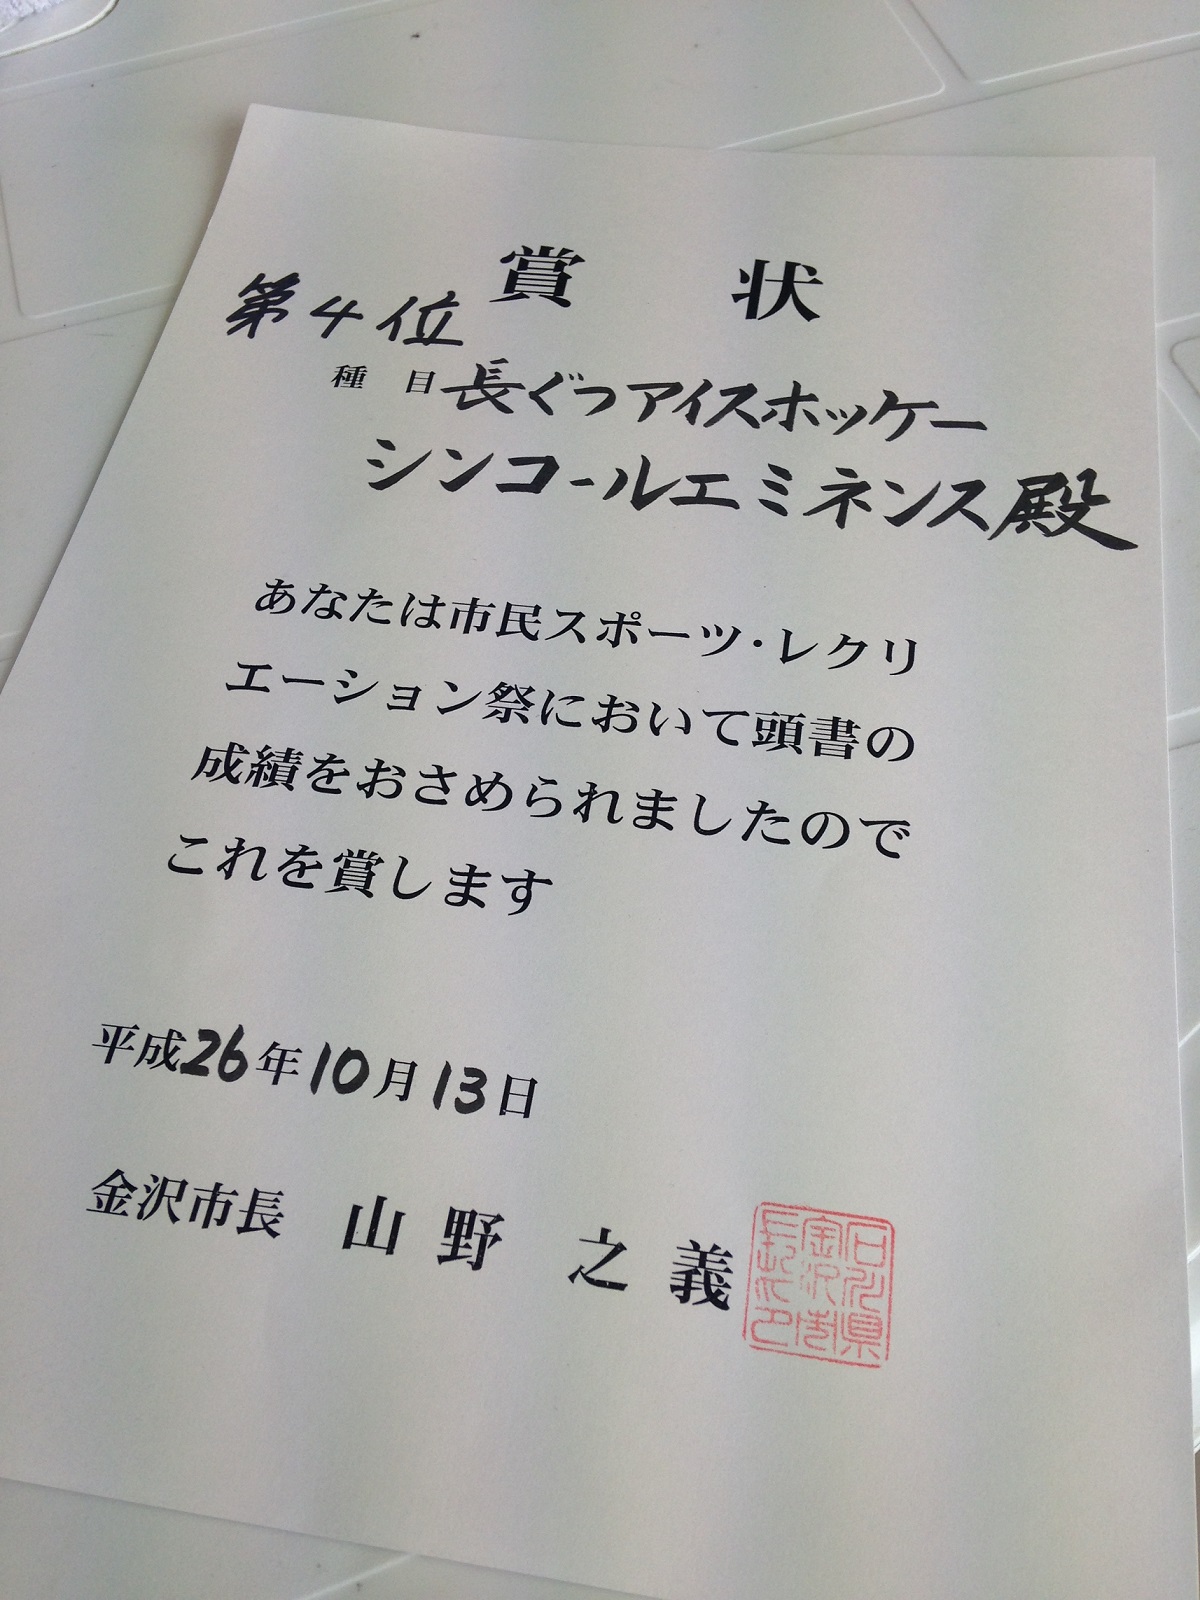 賞状
第4位
種目 長ぐつアイスホッケー
シンコールエミネンス殿
あなたは市民スポーツ・レクリ
エーション祭において頭書の
成績をおさめられましたので
これを賞します
平成26年10月13日
金沢市長 山野之義
石川県
金沢市
長之印